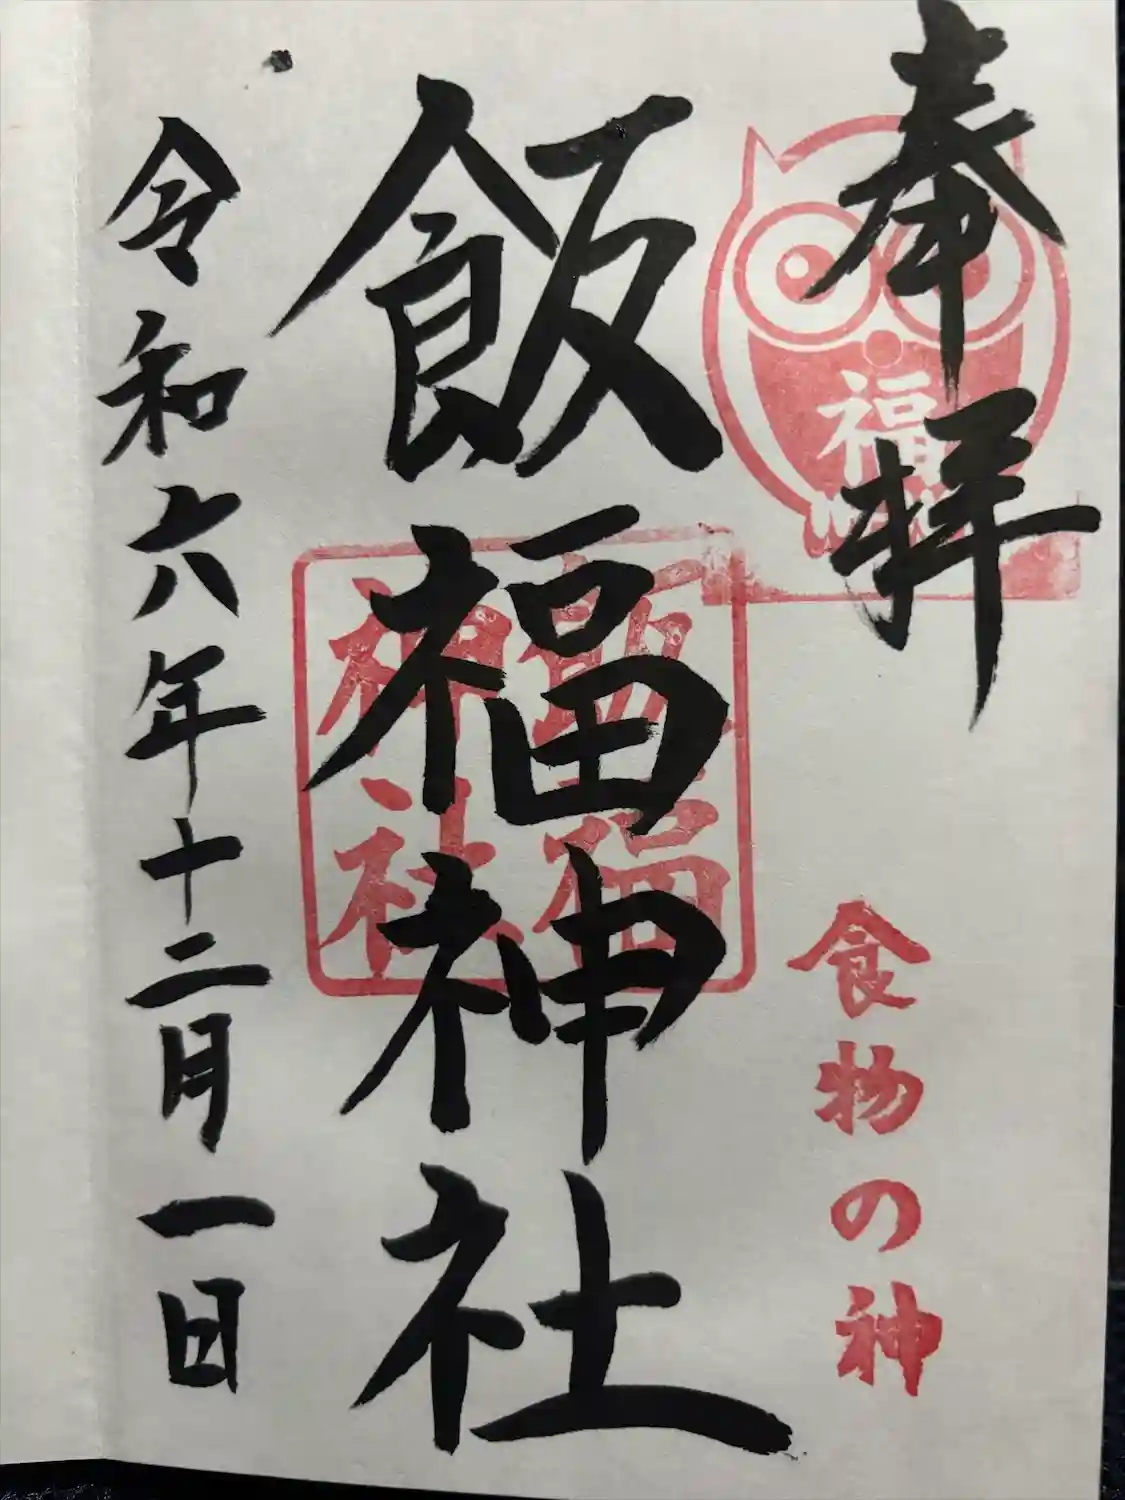 奉拝
福
食物の神
飯福神社
飯福
神社
令和六年十二月一日